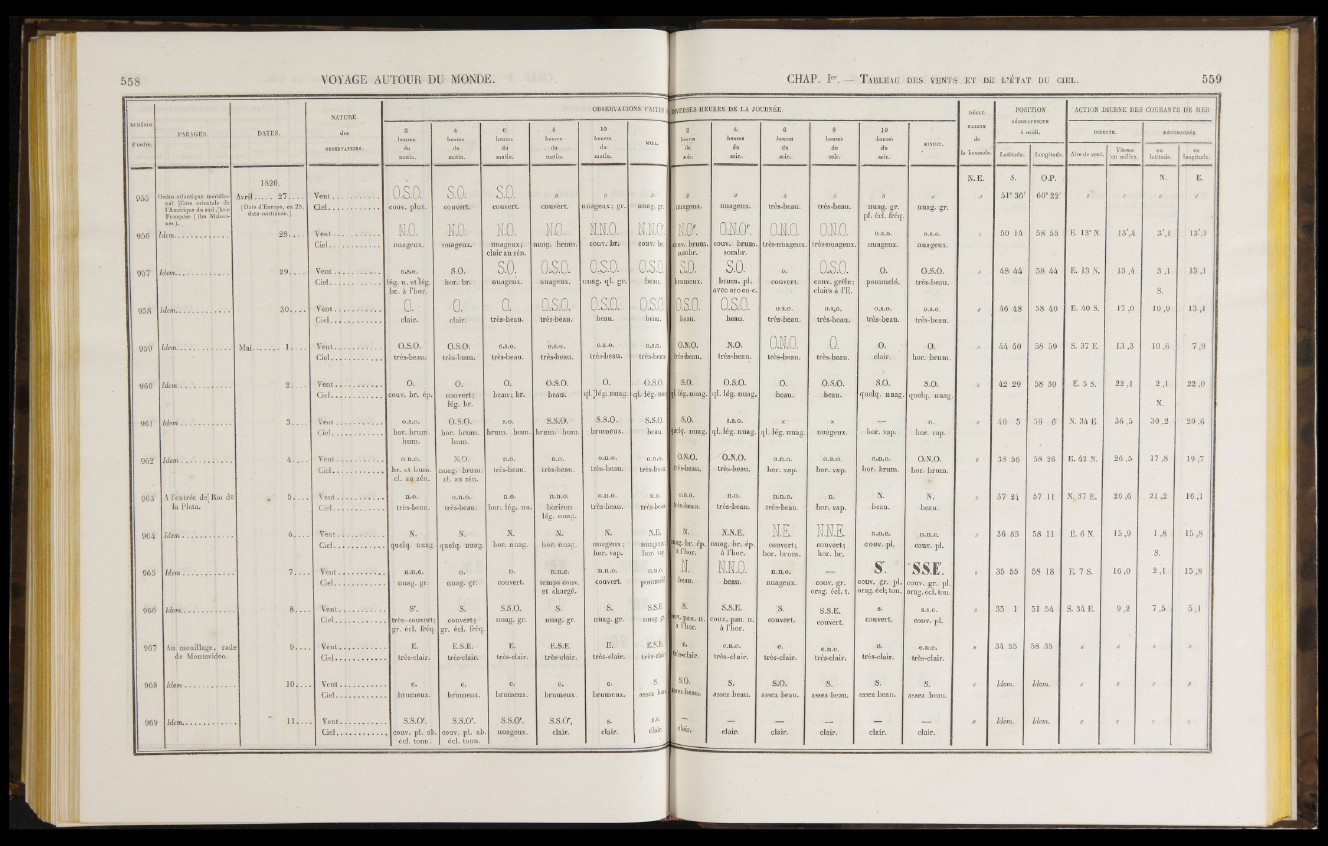 558
VOYAGE AUTOUR DU MONDE.
NUMÉROS d'ordre. PARAGES. DATES. NATURE des OBSERVATIONS. OBSERVATIONS FAITES
2 heures du matin. 4 heures du matin. 6 heures du matin. 8 heures du matin. 10 heures du matin. MIDI.
1820.
955 Avril..... 27.... Vent O.S.O. S.O. S.O. " " "
[Date d'Europe, en 28, date continuée.]
Ciel couv. pluv. couvert. couvert. couvert. nuageux; gr. nuag. gr.
956 Idem 28.... Vent N.O. N.O. N.O. N.O. N.N.O. N.N.O'.
Ciel nuageux. nuageux. nuageux; clair au zén. nuag. brum. couv. br. couv. br.
957 Idem 29.... Vent o.s.o. S.O. S.O. O.S.O. O.S.O. O.S.O.
Ciel lég. n. et lég. br. à l'hor. hor. br. nuageux. nuageux. nuag. ql. gr. beau.
958 Idem 30.... Vent O. O. O. O.S.O. O.S.O. O.S.O.
Ciel clair. clair. très-beau. très-beau. beau. beau.
959 Idem Mai....... 1.... Vent O.S.O. O.S.O. o.s.o. o.s.o. o.s.o. o.s.o.
Ciel très-beau. très-beau. très-beau. très-beau. très-beau. très-beau.
960 Idem 2.... Vent O. O. O. O.S.O. O. O.S.O.
Ciel couv. br. ép. couvert; lég. br. beau; br. beau. ql. lég. nuag. ql. lég. nuag.
961 Idem 3.... Vent o.s.o. O.S.O. s.o. S.S.O. S.S.O. S.S.O.
Ciel hor. brum. hum. hor. brum. hum. brum. hum. brum. hum. brumeux. beau.
962 Idem 4.... Vent o.n.o. N.O. n.o. n.o. o.n.o. o.n.o.
Ciel br. et hum. cl. au zén. nuag. brum. cl. au zén. très-beau. très-beau. très-beau. très-beau.
963 A l'entrée de Rio de la Plata. 5.... Vent n.o. o.n.o. n.o. n.n.o. o.n.o. n.o.
Ciel très-beau. très-beau. hor. lég. nu. horizon lég. nuag. très-beau. très-beau.
964 Idem 6.... Vent N. N. N. N. N. N.E.
Ciel quelq. nuag. quelq. nuag. hor. nuag. hor. nuag. nuageux; hor. vap. nuageux; hor. vap.
965 Idem 7.... Vent n.n.e. n. n. n.n.e. n.n.o. n.n.o.
Ciel nuag. gr. nuag. gr. couvert. temps couv. et chargé. couvert. pommelé.
966 Idem 8.... Vent S'. S. S.S.O. S. S. S.S.E.
Ciel très-couvert; gr. écl. fréq. couvert; gr. écl. fréq. nuag. gr. nuag. gr. nuag. gr. nuag. gr.
967 Au mouillage, rade de Montevideo. 9.... Vent E. E.S.E. E. E.S.E. E. E.S.E.
Ciel très-clair. très-clair. très-clair. très-clair. très-clair. très-clair.
968 Idem 10.... Vent e. e. e. e. e. S.
Ciel brumeux. brumeux. brumeux. brumeux. brumeux. assez beau.
969 Idem 11.... Vent S.S.O'. S.S.O'. S.S.O'. S.S.O'. s. s.o.
Ciel couv. pl. ab. écl. tonn. couv. pl. ab. écl. tonn. nuageux. clair. clair. clair.
CHAP. Ier. — TABLEAU DES VENTS ET DE L'ÉTAT DU CIEL.
559
DIVERSES HEURES DE LA JOURNÉE. DÉCLINAISON de la boussole. POSITION GÉOGRAPHIQUE à midi. ACTION DIURNE DES COURANTS DE MER
2 heures du soir. 4 heures du soir. 6 heures du soir. 8 heures du soir. 10 heures du soir. MINUIT. Latitude. Longitude. DIRECTE. DÉCOMPOSÉE
Aire de vent. Vitesse en milles. en latitude. en longitude.
N.E. S. O.P. N. E.
" " " " " " " 51° 36' 60° 22' " " " "
nuageux. nuageux. très-beau. très-beau. nuag. gr. pl. écl. fréq. nuag. gr.
N.O'. O.N.O'. O.N.O. O.N.O. o.s.o. o.s.o. " 50 14 58 55 E. 13° N. 13',4 3',1 13',1
couv. brum. couv. brum. sombr. très-nuageux. très-nuageux. nuageux. nuageux.
S.O. S.O. o. O.S.O. O. O.S.O. " 48 44 58 44 E. 13 N. 13,4 3,1 13,1
brumeux. brum. pl. avec arc-en-c. couvert. couv. grêle: clairs à l'E. pommelé. très-beau. S.
O.S.O. O.S.O. o.s.o. o.s.o. o.s.o. o.s.o. " 46 48 58 40 E. 40 S. 17,0 10,9 13,1
beau. beau. très-beau. très-beau. très-beau. très-beau.
O.N.O. N.O. O.N.O. O. O. o. " 44 40 58 59 S. 37 E. 13,3 10,6 7,9
très-beau. très-beau. très-beau. très-beau. clair. hor. brum.
S.O. O.S.O. O. O.S.O. S.O. S.O. " 42 29 58 39 E. 5 S. 22,1 2,1 22,0
ql. lég. nuag. ql. lég. nuag. beau. beau. quelq. nuag. quelq. nuag. N.
S.O. s.s.o. — o. " 40 5 59 6 N. 34 E. 36,5 30,2 20,6
quelq. nuag. ql. lég. nuag. ql. lég. nuag. nuageux. hor. vap. hor. vap.
O.N.O. O.N.O. o.n.o. o.n.o. o.n.o. O.N.O. " 38 56 58 26 E. 42 N. 26,5 17,8 19,7
très-beau. très-beau. hor. vap. hor. vap. hor. brum. hor. brum.
o.n.o. n.o. n.n.o. n. N. N. " 37 24 57 11 N. 37 E. 26,6 21,2 16,1
très-beau. très-beau. très-beau. hor. vap. beau. beau.
N. N.N.E. N.E. N.N.E. n.n.e. n.n.e. " 36 35 58 11 E. 6 N. 15,9 1,8 15,8
nuag. br. ép. à l'hor. nuag. br. ép. à l'hor. couvert; hor. brum. couvert; hor. br. couv. pl. couv. pl. S.
N. N.N.O. n.n.o. — S'. S.S.E'. " 35 55 58 18 E. 7 S. 16,0 2,1 15,8
beau. beau. nuageux. couv. gr. orag. écl. t. couv. gr. pl. orag. écl; ton. couv. gr. pl. orag. écl. ton.
S. S.S.E. S. S.S.E. s. s.s.e. " 35 1 51 54 S. 34 E. 9,2 7,5 5,1
couv. pan. n. à l'hor. couv. pan. n. à l'hor. couvert. couvert. couvert. couv. pl.
e. e.n.e. e. e.n.e. e. e.n.e. " 34 55 58 35 " " " "
très-clair. très-clair. très-clair. très-clair. très-clair. très-clair.
S.O. S. S.O. S. S. S. " Idem. Idem. " " " "
assez beau. assez beau. assez beau. assez beau. assez beau. assez beau.
— — — — — — " Idem. Idem. " " " "
clair. clair. clair. clair. clair. clair.